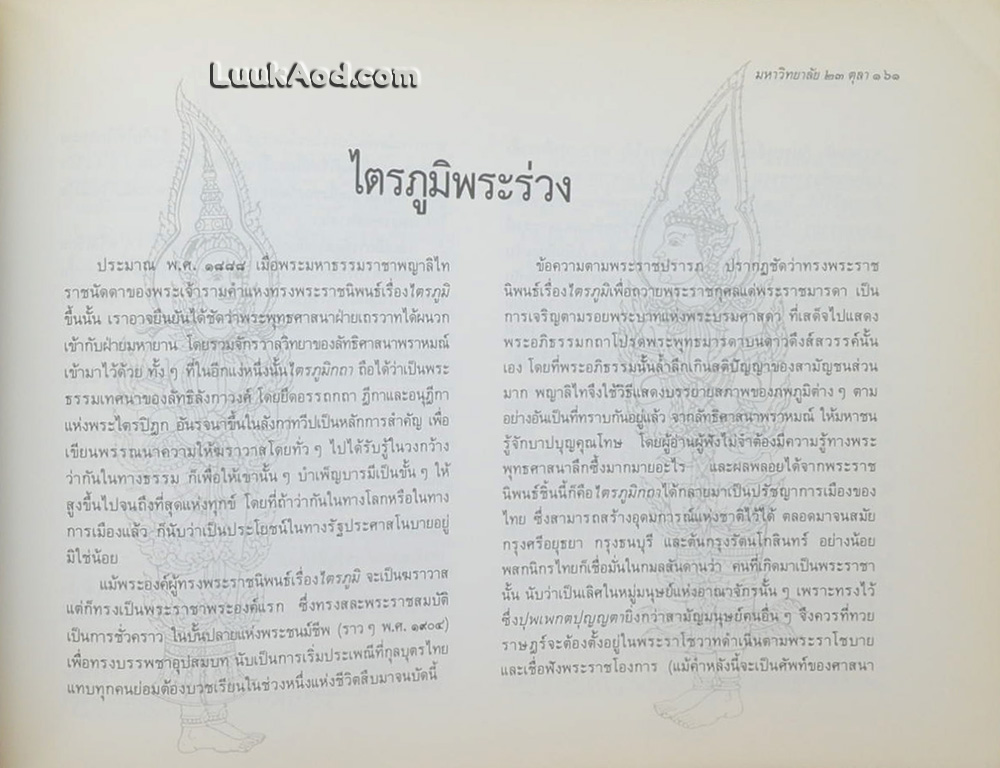 LuukAod.com
มหาวิทยาลัย ๒๓ ตุลา ๑๖๑
ไตรภูมิพระร่วง
ประมาณ พ.ศ. ๑๘๘๘ เมื่อพระมหาธรรมราชาพญาลิไท
ราชนัดดาของพระเจ้ารามคำแหงทรงพระราชนิพนธ์เรื่องไตรภูมิ
ขึ้นนั้น เราอาจยืนยันได้ชัดว่าพระพุทธศาสนาฝ่ายเถรวาทได้ผนวก
เข้ากับฝ่ายมหายาน โดยรวมจักรวาลวิทยาของลัทธิศาสนาพราหมณ์
เข้ามาไว้ด้วย ทั้ง ๆ ที่ในอีกแง่หนึ่งนั้นไตรภูมิกถา ถือได้ว่าเป็นพระ
ธรรมเทศนาของลัทธิลังกาวงศ์ โดยยึดอรรถกถา ฎีกาและอนุฎีกา
แห่งพระไตรปิฎก อันรจนาขึ้นในลังกาทวีปเป็นหลักการสำคัญ เพื่อ
เขียนพรรณนาความให้ฆราวาสโดยทั่ว ๆ ไปได้รับรู้ในวงกว้าง
ว่ากันในทางธรรม ก็เพื่อให้เขานั้น ๆ บำเพ็ญบารมีเป็นขั้น ๆ ให้
สูงขึ้นไปจนถึงที่สุดแห่งทุกข์ โดยที่ถ้าว่ากันในทางโลกหรือในทาง
การเมืองแล้ว ก็นับว่าเป็นประโยชน์ในทางรัฐประศาสโนบายอยู่
มิใช่น้อย
แม้พระองค์ผู้ทรงพระราชนิพนธ์เรื่องไตรภูมิ จะเป็นฆราวาส
แต่ก็ทรงเป็นพระราชาพระองค์แรก ซึ่งทรงสละพระราชสมบัติ
เป็นการชั่วคราว ในบั้นปลายแห่งพระชนม์ชีพ (ราว ๆ พ.ศ. ๑๙๐๔)
เพื่อทรงบรรพชาอุปสมบท นับเป็นการเริ่มประเพณีที่กุลบุตรไทย
แทบทุกคนย่อมต้องบวชเรียนในช่วงหนึ่งแห่งชีวิตสืบมาจนบัดนี้
ข้อความตามพระราชปรารภ ปรากฏชัดว่าทรงพระราช
นิพนธ์เรื่องไตรภูมิเพื่อถวายพระราชกุศลแด่พระราชมารดา เป็น
การเจริญตามรอยพระบาทแห่งพระบรมศาสดา ที่เสด็จไปแสดง
พระอภิธรรมกถาโปรดพระพุทธมารดาบนดาวดึงส์สวรรค์นั้น
เอง โดยที่พระอภิธรรมนั้นล้ำลึกเกินสติปัญญาของสามัญชนส่วน
มาก พญาลิไทจึงใช้วิธีแสดงบรรยายสภาพของภพภูมิต่าง ๆ ตาม
อย่างอันเป็นที่ทราบกันอยู่แล้ว จากลัทธิศาสนาพราหมณ์ ให้มหาชน
รู้จักบาปบุญคุณโทษ โดยผู้อ่านผู้ฟังไม่จำต้องมีความรู้ทางพระ
พุทธศาสนาลึกซึ้งมากมายอะไร และผลพลอยได้จากพระราช
นิพนธ์ชิ้นนี้ก็คือไตรภูมิกถาได้กลายมาเป็นปรัชญาการเมืองของ
ไทย ซึ่งสามารถสร้างอุดมการณ์แห่งชาติไว้ได้ ตลอดมาจนสมัย
กรุงศรีอยุธยา กรุงธนบุรี และต้นกรุงรัตนโกสินทร์ อย่างน้อย
พสกนิกรไทยก็เชื่อมั่นในกมลสันดานว่า คนที่เกิดมาเป็นพระราชา
นั้น นับว่าเป็นเลิศในหมู่มนุษย์แห่งอาณาจักรนั้น ๆ เพราะทรงไว้
ซึ่งปุพเพกตปุญญตายิ่งกว่าสามัญมนุษย์คนอื่น ๆ จึงควรที่ทวย
ราษฎร์จะต้องตั้งอยู่ในพระราโชวาทดำเนินตามพระราโชบาย
และเชื่อฟังพระราชโองการ (แม้คำหลังนี้จะเป็นศัพท์ของศาสนา